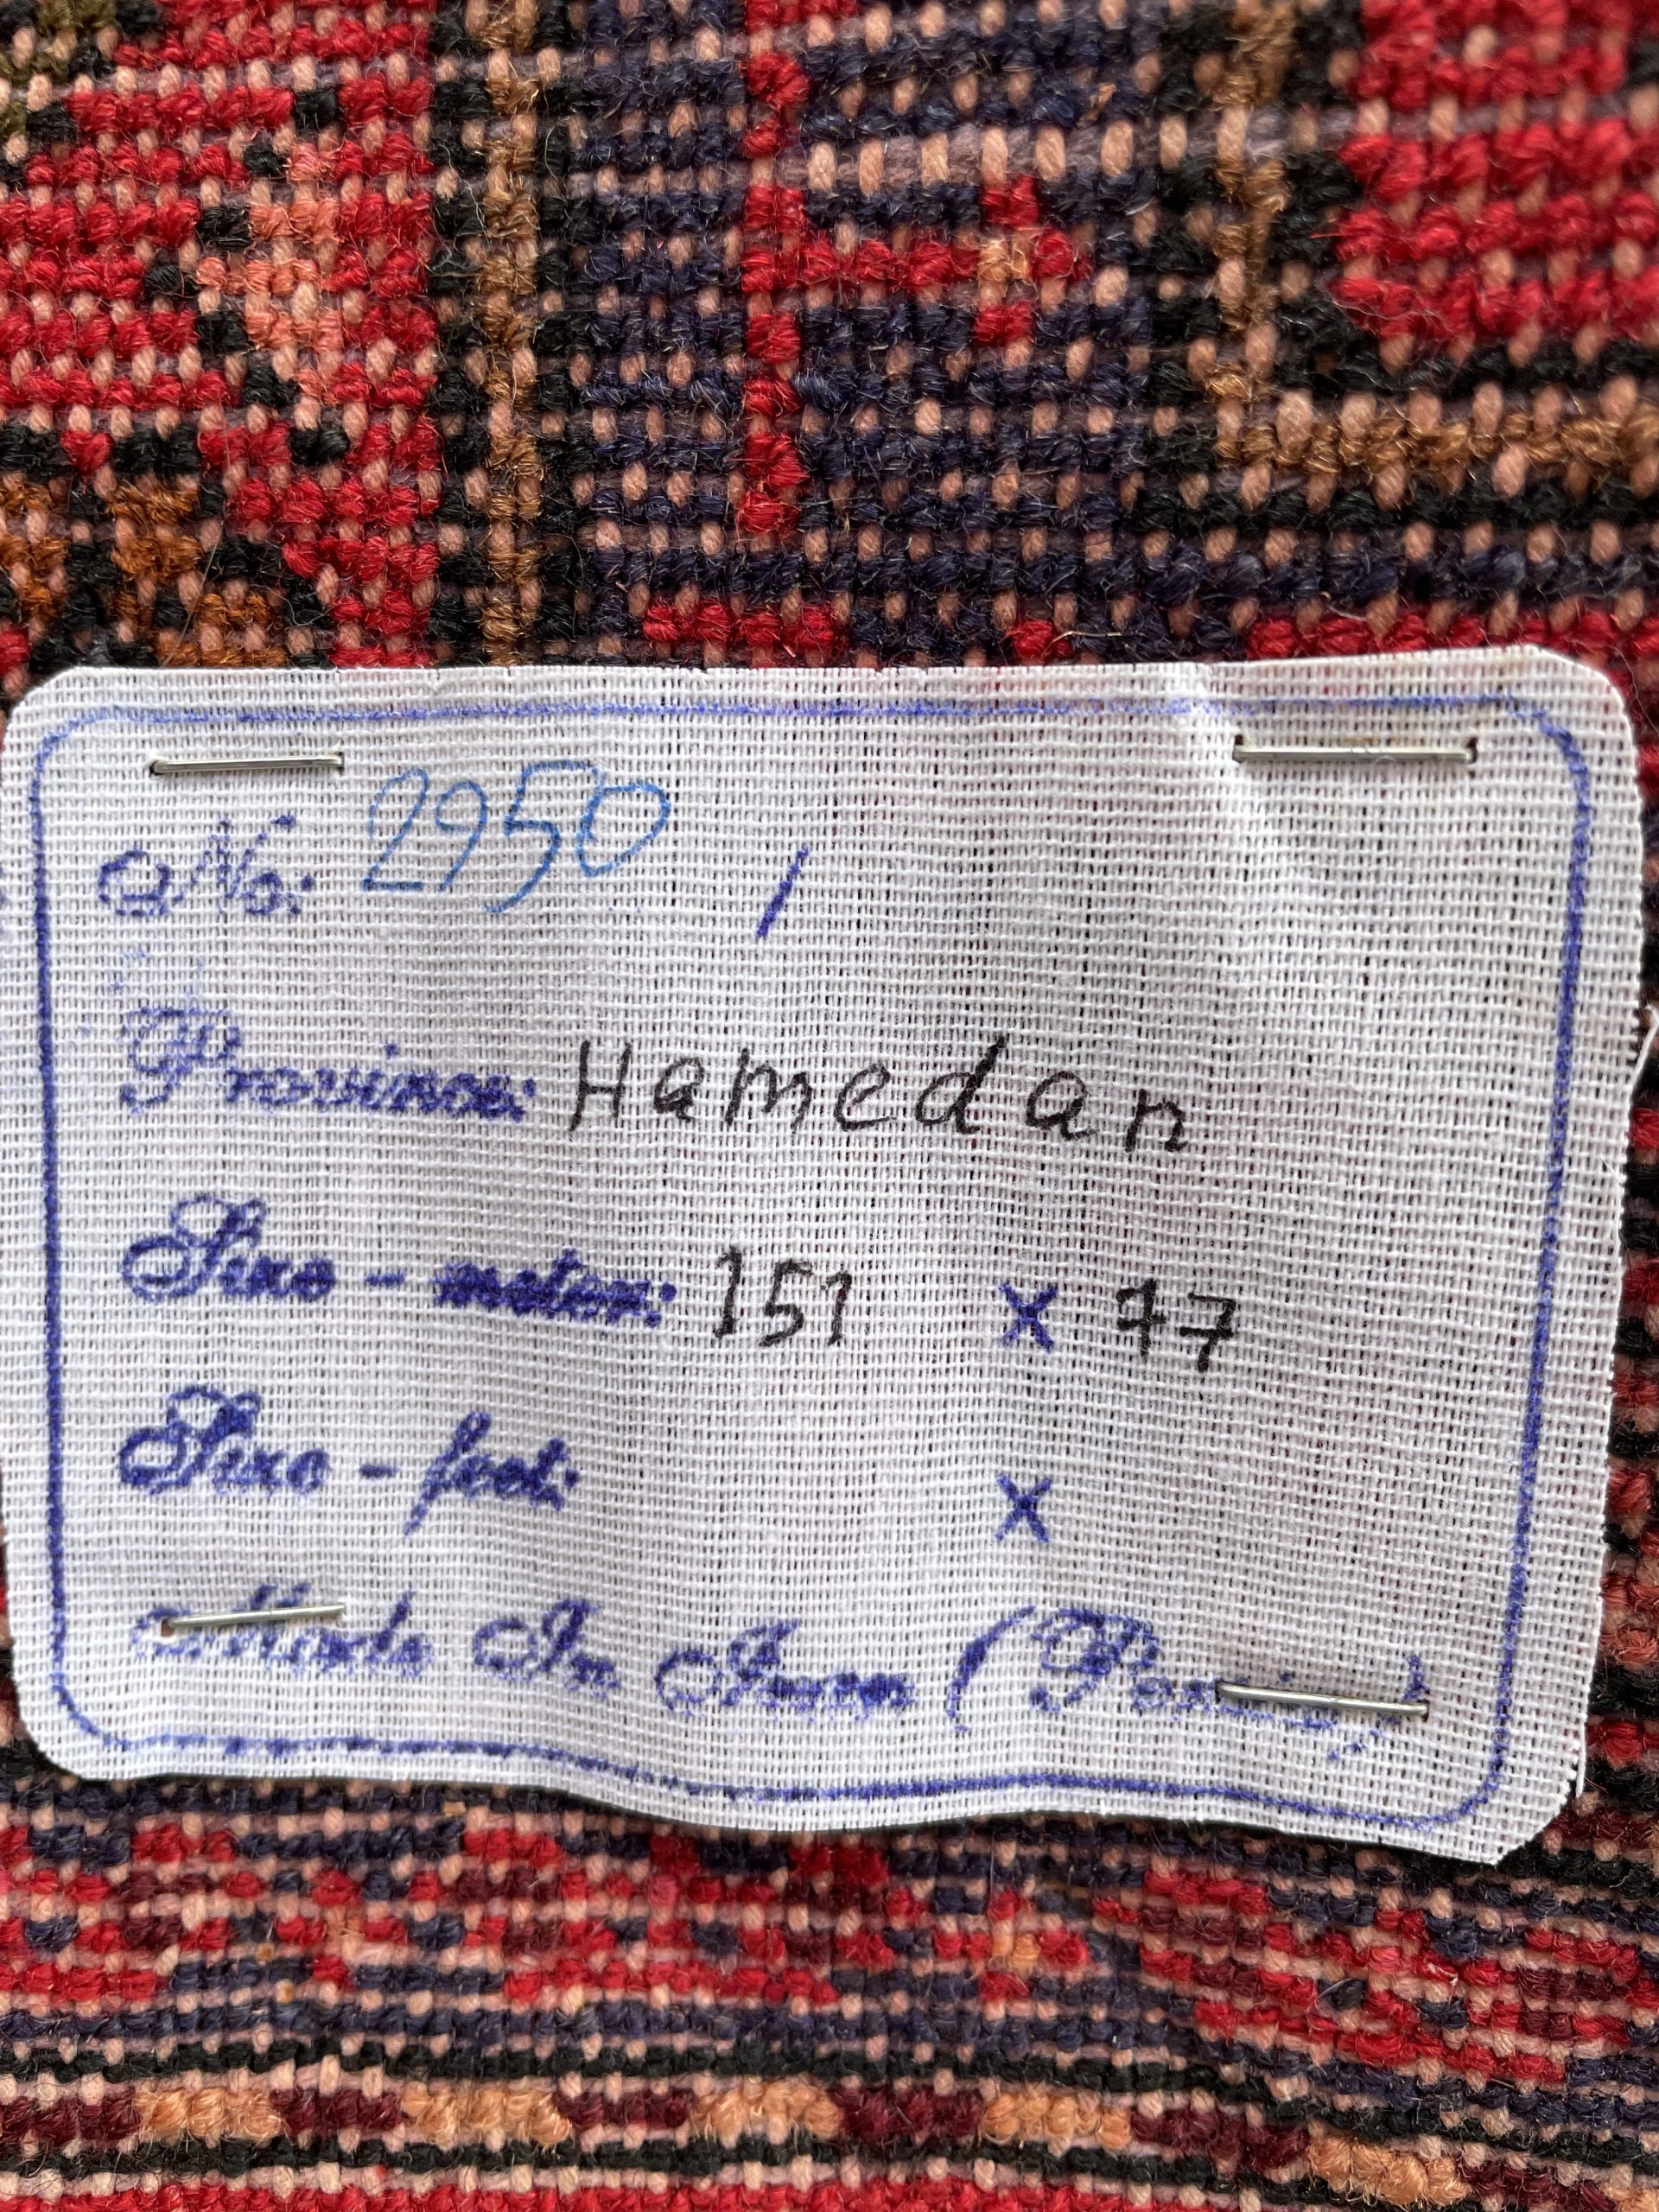 No: 2950 /
Province: Hamedan
Size - meter: 151 × 77
Size - feet: ×
Made In Iran (Persia)